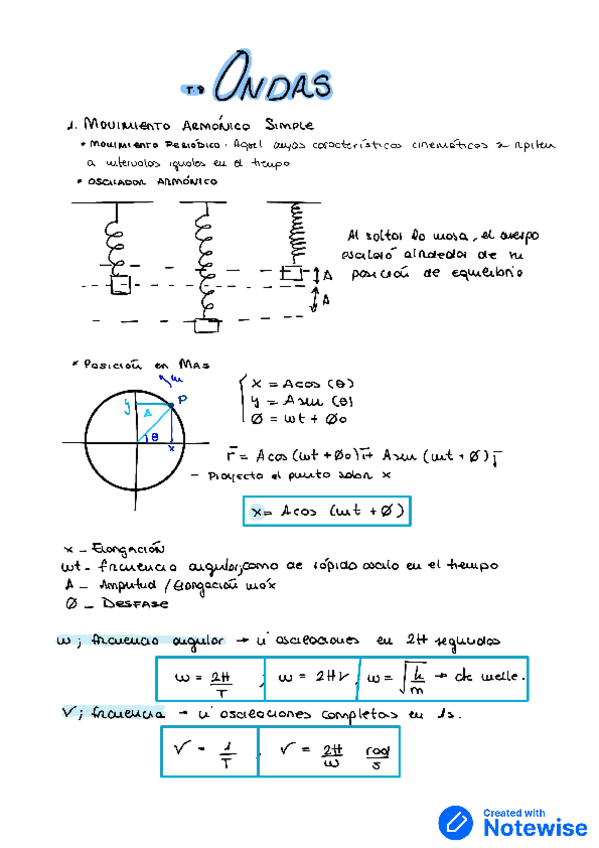 T.9 ONDAS
1. MOVIMIENTO ARMÓNICO SIMPLE
* MOVIMIENTO PERIÓDICO: Aquel cuyas características cinemáticas se repiten
a intervalos iguales en el tiempo
* OSCILADOR ARMÓNICO
Al soltar la masa, el cuerpo
oscilará alrededor de su
posición de equilibrio
A
A
* POSICIÓN en MAS
y A P
θ x
x = A cos (θ)
y = A sen (θ)
Ø = wt + Øo
r = A cos (wt + Øo) i + A sen (wt + Ø) j
- Proyecto el punto sobre x
x = A cos (wt + Ø)
x - Elongación
wt - frecuencia angular; como de rápido oscila en el tiempo
A - Amplitud / Elongación máx
Ø - DESFASE
w; frecuencia angular → nº oscilaciones en 2π segundos
w = 2π/T ; w = 2πν ; w = √k/m → cte muelle.
ν; frecuencia → nº oscilaciones completas en 1s.
ν = 1/T ν = 2π/w rad/s
Created with
Notewise